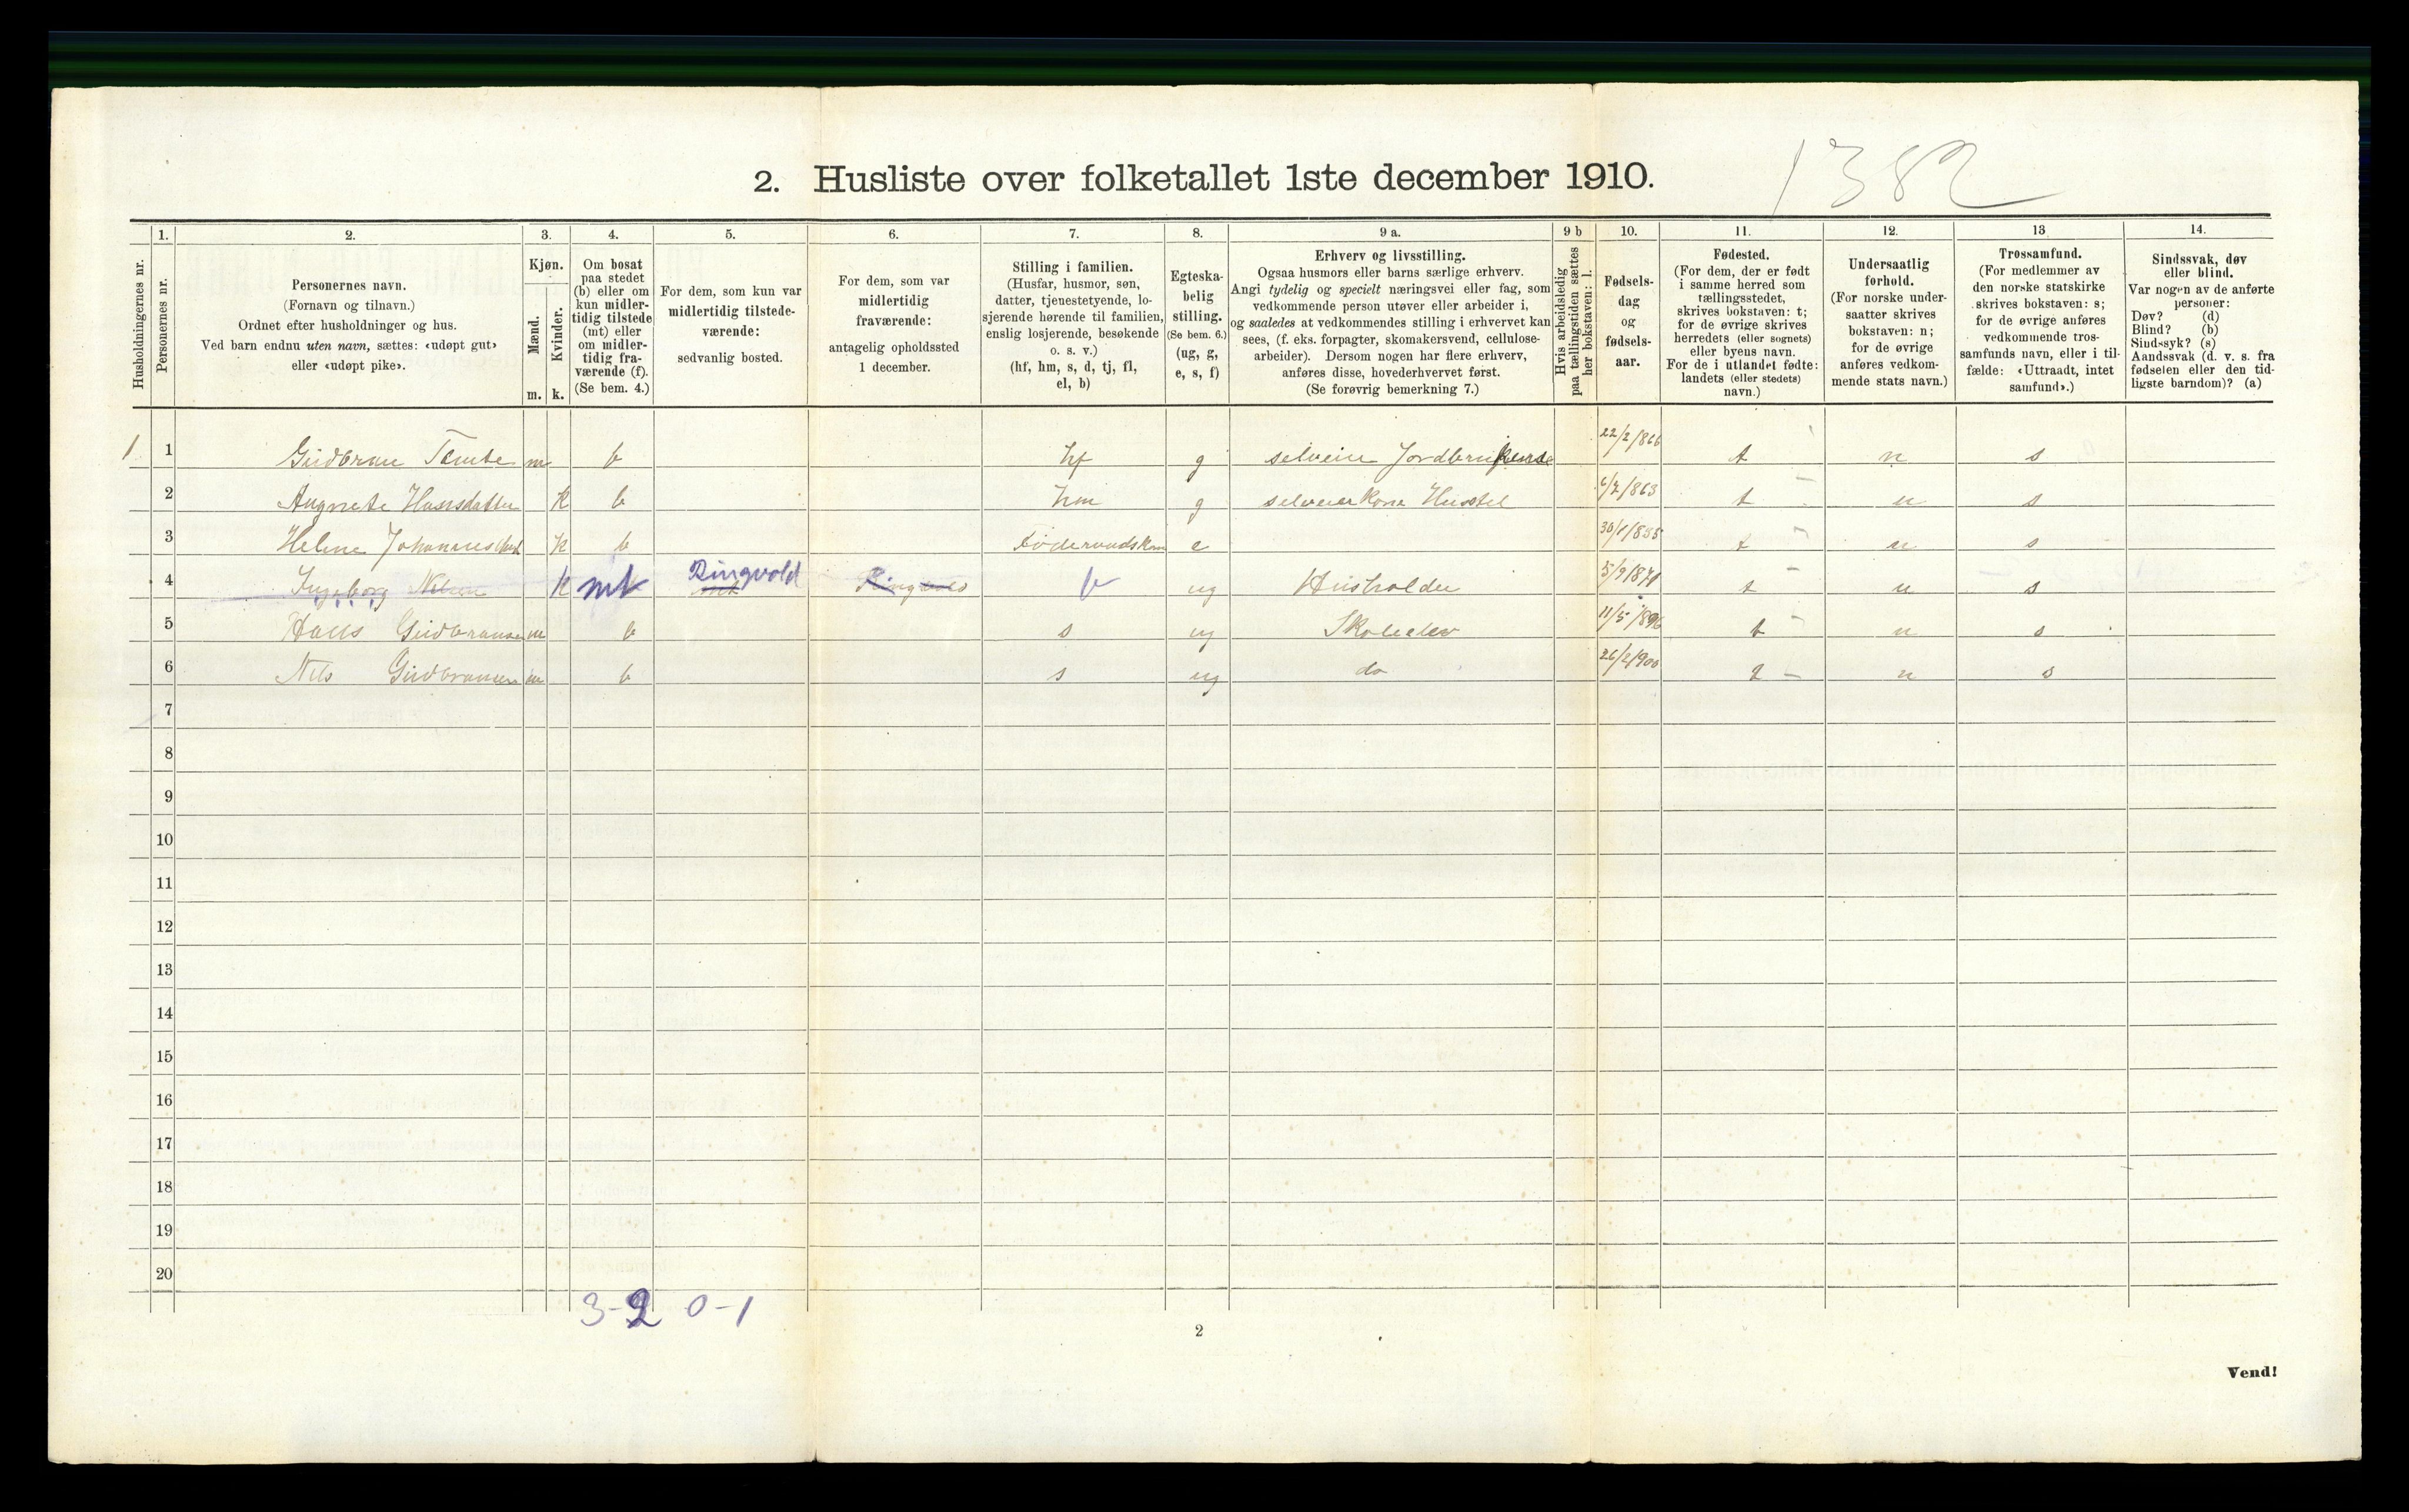 1382
2. Husliste over folketallet 1ste december 1910.
Husholdningernes nr.
1. Personernes nr.
2. Personernes navn.
(Fornavn og tilnavn.)
Ordnet efter husholdninger og hus.
Ved barn endnu uten navn, sættes: «udøpt gut»
eller «udøpt pike».
3. Kjøn.
Mænd. Kvinder.
m. k.
4. Om bosat
paa stedet
(b) eller om
kun midler-
tidig tilstede
(mt) eller
om midler-
tidig fra-
værende (f).
(Se bem. 4.)
5. For dem, som kun var
midlertidig tilstede-
værende:
sedvanlig bosted.
6. For dem, som var
midlertidig
fraværende:
antagelig opholdssted
1 december.
7. Stilling i familien.
(Husfar, husmor, søn,
datter, tjenestetyende, lo-
sjerende hørende til familien,
enslig losjerende, besøkende
o. s. v.)
(hf, hm, s, d, tj, fl,
el, b)
8. Egteska-
belig
stilling.
(Se bem. 6.)
(ug, g,
e, s, f)
9 a. Erhverv og livsstilling.
Ogsaa husmors eller barns særlige erhverv.
Angi tydelig og specielt næringsvei eller fag, som
vedkommende person utøver eller arbeider i,
og saaledes at vedkommendes stilling i erhvervet kan
sees, (f. eks. forpagter, skomakersvend, cellulose-
arbeider). Dersom nogen har flere erhverv,
anføres disse, hovederhvervet først.
(Se forøvrig bemerkning 7.)
9 b Hvis arbeidsledig
paa tællingstiden sættes
her bokstaven: l.
10. Fødsels-
dag
og
fødsels-
aar.
11. Fødested.
(For dem, der er født
i samme herred som
tællingsstedet,
skrives bokstaven: t;
for de øvrige skrives
herredets (eller sognets)
eller byens navn.
For de i utlandet fødte:
landets (eller stedets)
navn.)
12. Undersaatlig
forhold.
(For norske under-
saatter skrives
bokstaven: n;
for de øvrige
anføres vedkom-
mende stats navn.)
13 Trossamfund.
(For medlemmer av
den norske statskirke
skrives bokstaven: s;
for de øvrige anføres
vedkommende tros-
samfunds navn, eller i til-
fælde: «Uttraadt, intet
samfund».)
14. Sindssvak, døv
eller blind.
Var nogen av de anførte
personer:
Døv? (d)
Blind? (b)
Sindssyk? (s)
Aandssvak (d. v. s. fra
fødselen eller den tid-
ligste barndom)? (a)
1 1 Gudbran m b hf g selveier 22/2/866 t n s
2 Hansdatter k b hm g selveierkone 1863 t n s
3 Helene k b e 30/1/835 t n s
4 Ingeborg Nilsen k mt Ringvold mt b ug Husholder 5/9/871 t n s
5 Hans Gudbransen m b s ug Skoleelev 11/5/896 t n s
6 Nils Gudbransen m b s ug do 26/2/900 t n s
7
8
9
10
11
12
13
14
15
16
17
18
19
20
3-2 0-1
2
Vend!